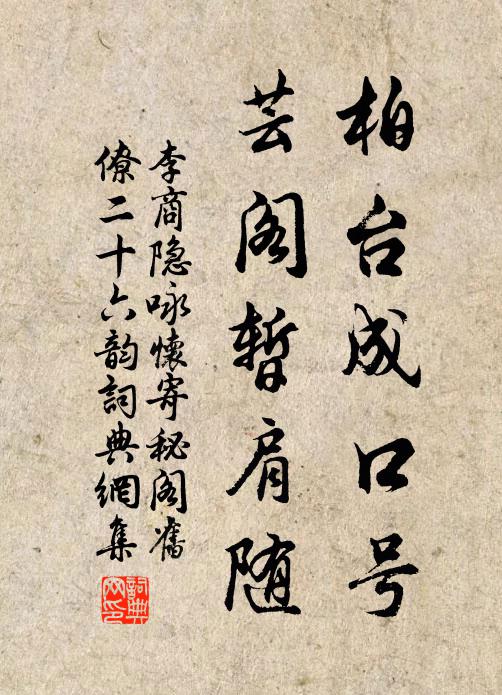 柏台成口号
芸阁暂肩随
李商隐咏懷寄秘阁舊
僚二十六韵詞典網集
詞典